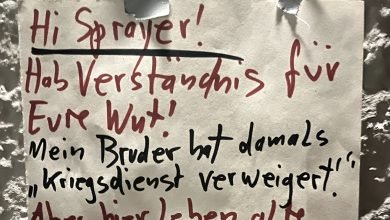 Hi Sprayer!
Hab Verständnis für
Eure Wut!
Mein Bruder hat damals
„Kriegsdienst verweigert!“
Aber hier leben alte